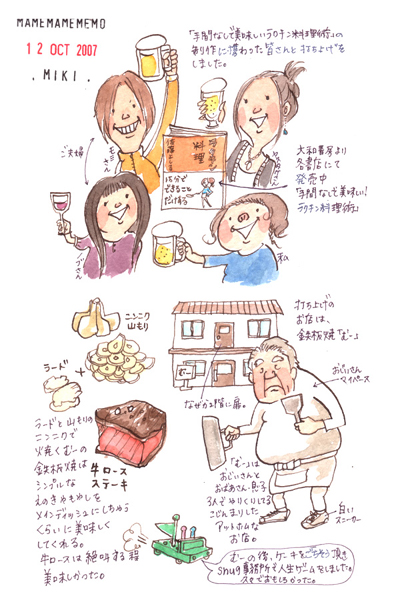 MAMEMAMEMEMO
12 OCT 2007
. MIKI .
「手間なしで美味しいラクチン料理術」の
制作に携わった皆さんと打ち上げを
しました。
ご夫婦
料理
15分で
できること
だけする
大和書房より
各書店にて
発売中
「手間なしで美味しい!
ラクチン料理術」
私
ニンニク
山もり
ラード
+
ラードと山もりの
ニンニクで
焼くむーの
鉄板焼は
シンプルな
えのきやもやしを
メインディッシュにしちゃう
くらいに美味しく
してくれる。
牛ロースは絶叫する程
美味しかった。
牛ロース
ステーキ
むー
なぜか2階に扉。
打ち上げの
お店は、
鉄板焼「むー」
おじいさん
マイペース
「むー」は
おじいさんと
おばあさん・息子
3人でゆりくりしてる
こじんまりした
アットホームな
お店。
白い
スニーカー
むーの後、ケーキをごちそう頂き
snug事務所で人生ゲームをしました。
久々でおもしろかった。